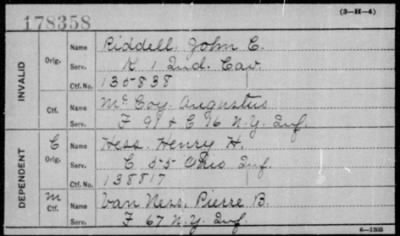 178358
(3-H-4)
INVALID
Orig. Name Riddell, John C.
Serv. K. 1 Ind. Cav.
Ctf. No. 135838
Ctf. Name McCoy, Augustus
Serv. F 91 & E 96 N.Y. Inf.
DEPENDENT
C Orig. Name Hess, Henry H.
Serv. C 55 Ohio Inf.
Ctf. No. 138817
M Ctf. Name Van Ness, Pierre B.
Serv. F 67 N.Y. Inf.